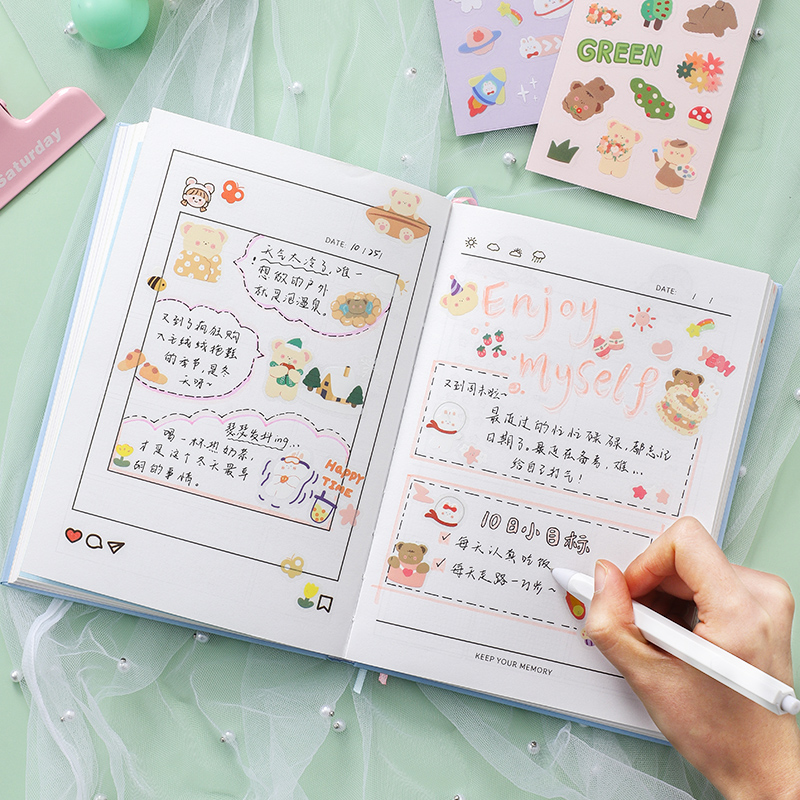 Saturday
GREEN
DATE: 10 / 25 /
天气太冷了,唯一
想做的户外
就是泡温泉。
又到了疯狂购
入毛绒绒抱
的季节,是冬
天呀~
瑟瑟发抖ing...
喝一杯热奶茶,
才是这个冬天最幸
的事情。
HAPPY
TIME
DATE: / /
Enjoy
Myself
YEAH
又到周末啦~
最近过的忙忙碌碌,都忘记
日期了。最近在备考,难...
给自己打气!
10月小目标
每天认真吃饭
每天走路一万步~
KEEP YOUR MEMORY